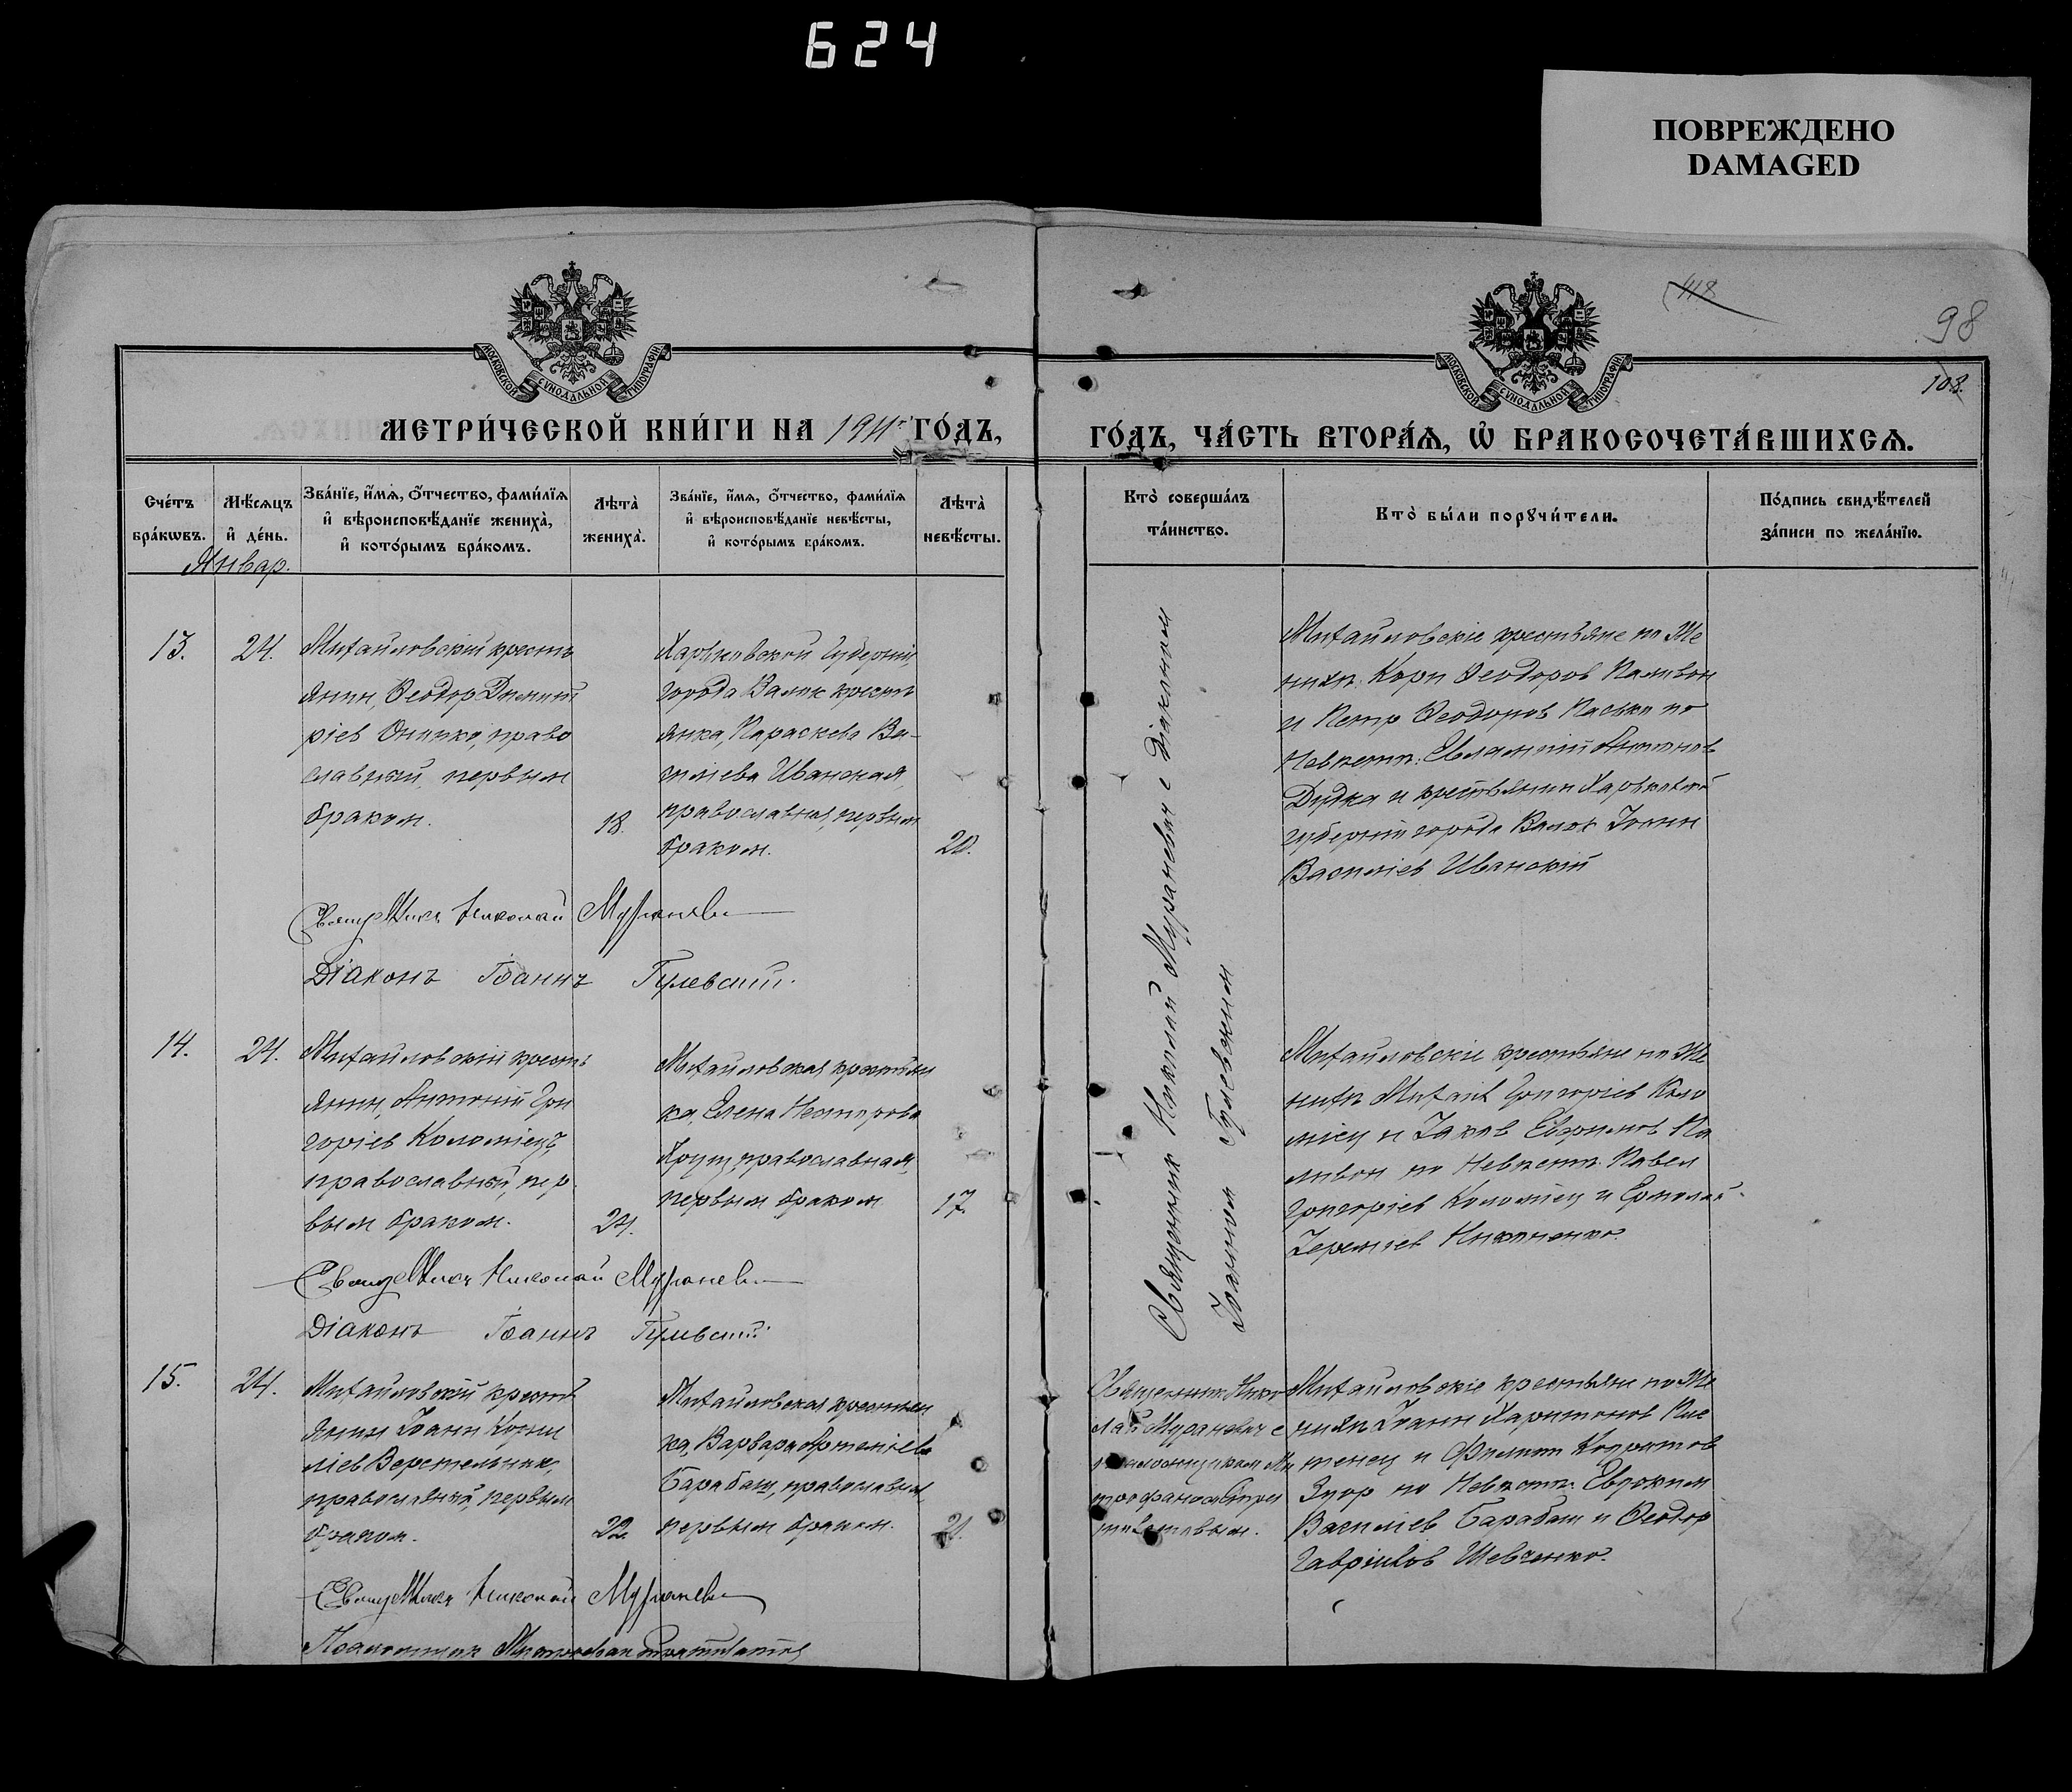 624
ПОВРЕЖДЕНО
DAMAGED
МОСКОВСКОЙ СѴНОДАЛЬНОЙ ТИПОГРАФІИ
МОСКОВСКОЙ СѴНОДАЛЬНОЙ ТИПОГРАФІИ
118
98
103.
МЕТРИ́ЧЕСКОЙ КНИ́ГИ НА 1911 го́дъ,
ГО́ДЪ, ЧА́СТЬ ВТОРА́Ѧ, Ѡ҆ БРАКОСОЧЕТА́ВШИХСѦ.
Сче́тъ бра́кωвъ.
Мѣ́сѧцъ и҆ де́нь.
Зва́нїе, и҆́мѧ, ѻ҆́тчество, фами́лїѧ
и҆ вѣроисповѣ́данїе жениха̀,
и҆ кото́рымъ бра́комъ.
Лѣта̀ жениха̀.
Зва́нїе, и҆́мѧ, ѻ҆́тчество, фами́лїѧ
и҆ вѣроисповѣ́данїе невѣ́сты,
и҆ кото́рымъ бра́комъ.
Лѣта̀ невѣ́сты.
Кто̀ соверша́лъ та́инство.
Кто̀ бы́ли порꙋчи́тели.
По́дпись свидѣ́телей за́писи по жела́нїю.
Январ.
13.
24.
Михайловскій кресть
янин, Ѳеодор Димит
ріев Онипко, право
славный, первым
браком.
18.
Харьковской губерніи
города Валок кресть
янка, Параскева Ва-
силіева Иванская,
православная, первым
браком.
20.
Священник Николай Мураневич с діаконом
Іоанном Гулевским
Михайловскіе крестьяне по Же
ниху: Корн Ѳеодоров Паливон
и Петр Ѳеодоров Пасько по
Невѣсте: Евлампій Антонов
Дудка и крестьянин Харьковской
губерніи города Валок Іоанн
Василіев Иванскій
Священник Николай Муранев
Діаконъ Іоаннъ Гулевскій.
14.
24.
Михайловскій кресть
янин, Антоній Гри
горіев Коломіецъ,
православный, пер
вым браком.
24.
Михайловская крестьян
ка, Елена Несторова
Хрущ, православная,
первым браком
17.
Михайловскіе крестьяне по Же
ниху Михаил Григоріев Коло
міец и Іаков Евфимов Па
ливон по Невѣсте: Павел
Григоріев Коломіец и Ермолай
Іереміев Никоненко.
Священник Николай Муранев
Діаконъ Іоаннъ Гулевскій
15.
24.
Михайловскій кресть
янин Іоанн Корни
ліев Верстельник,
православный, первым
браком.
22.
Михайловская крестьян
ка, Варвара Артеміева
Барабаш, православная,
первым браком.
21.
Священник Нико
лай Мураневич с
псаломщиком Ми
трофаном
Михайловскіе крестьяне по Же
ниху Іоанн Харитонов Пис
менец и Филипп Кондратов
Згор по Невѣсте: Евдоким
Василіев Барабаш и Ѳеодор
Гавріилов Шевченко.
Священник Николай Муранев
Псаломщик Митрофан